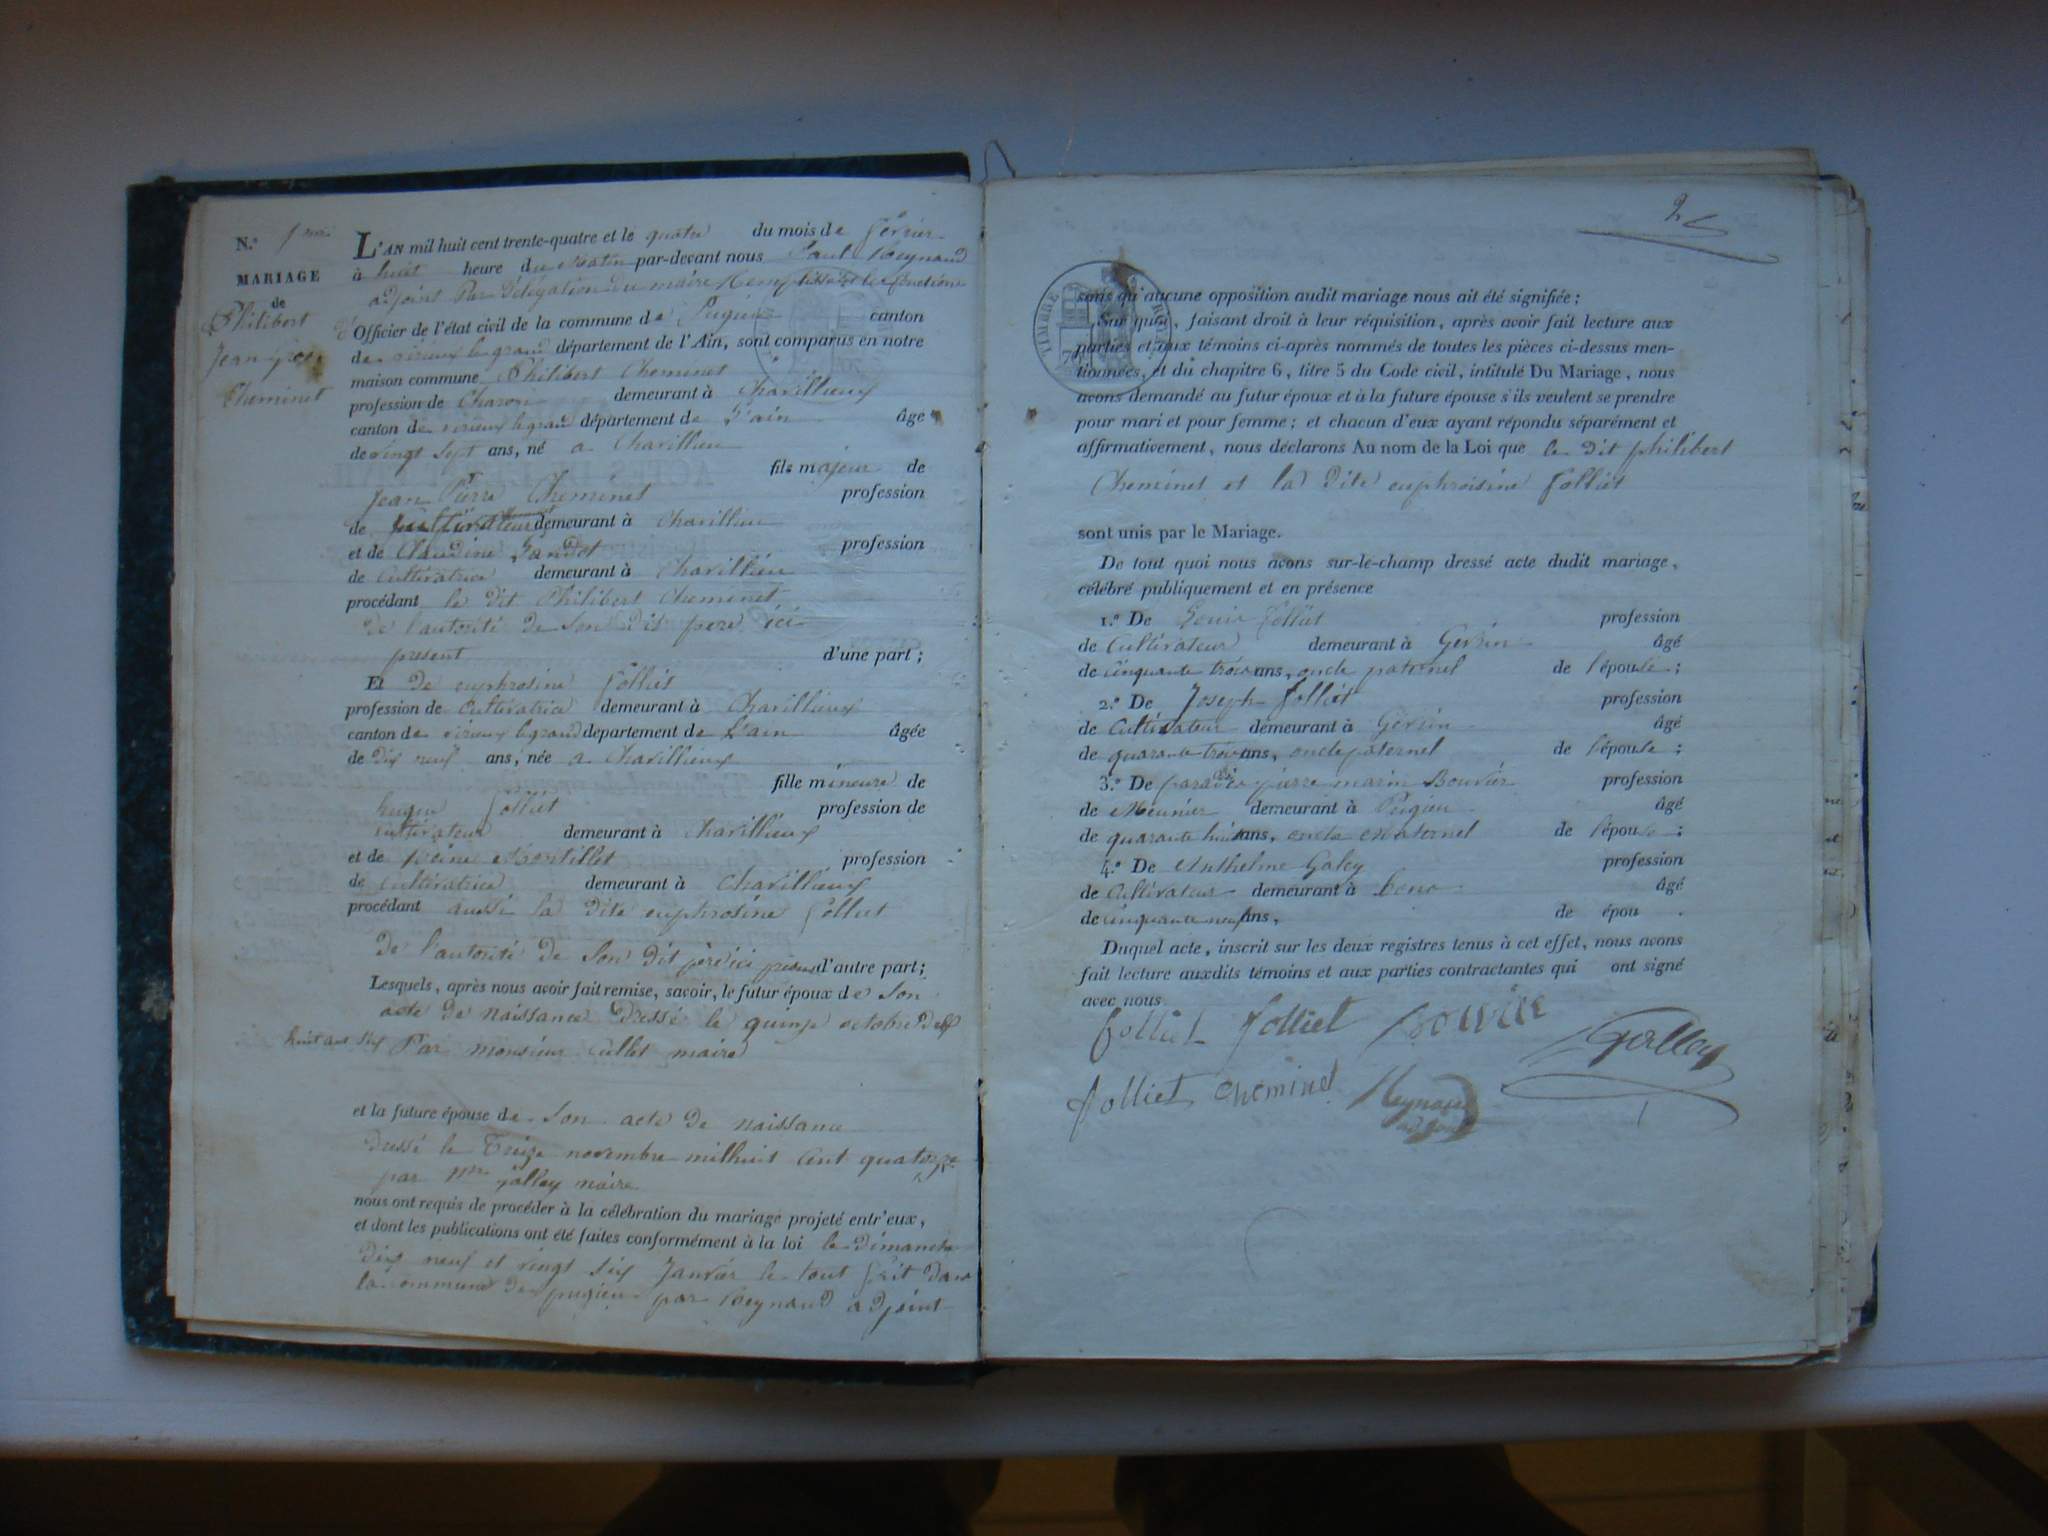 N.º 1
MARIAGE
de
Philibert
Jean
Cheminet
L'AN mil huit cent trente-quatre et le quatre du mois de février
à huit heure du Matin par-devant nous Paul Reynaud
adjoint Par Délégation du maire Remplissant les fonctions
d'Officier de l'état civil de la commune de Pugieu canton
de virieux le grand département de l'Ain, sont comparus en notre
maison commune Philibert Cheminet
profession de Charon demeurant à Chavillieux
canton de virieux le grand département de L'ain âgé
de vingt sept ans, né a Chavillieu
fils majeur de
Jean Pierre Cheminet profession
de cultivateur demeurant à Chavillieu
et de Claudine Jandet profession
de Cultivatrice demeurant à Chavillieu
procédant le dit Philibert Cheminet
de l'autorité de Son dit pere ici
present d'une part ;
Et de euphrosine folliet
profession de Cultivatrice demeurant à Chavillieux
canton de virieux le grand département de L'ain âgée
de Dix neuf ans, née a Chavillieux
fille mineure de
folliet profession de
cultivateur demeurant à Chavillieux
et de Montillet profession
de cultivatrice demeurant à Chavillieux
procédant aussi la dite euphrosine folliet
De l'autorité de Son dit père ici present d'autre part ;
Lesquels, après nous avoir fait remise, savoir, le futur époux de Son
acte de Naissance Dressé le quinze octobre
huit cent six Par Monsieur Cullet maire
et la future épouse de Son acte de naissance
dressé le Treize novembre mil huit cent quatorze
par Mr galley maire
nous ont requis de procéder à la célébration du mariage projeté entr'eux,
et dont les publications ont été faites conformément à la loi le dimanche
Dix neuf et vingt six Janvier le tout fait dans
la commune de pugieu par Reynaud adjoint
2
TIMBRE ROYAL
70
sans qu'aucune opposition audit mariage nous ait été signifiée ;
Sur quoi, faisant droit à leur réquisition, après avoir fait lecture aux
parties et aux témoins ci-après nommés de toutes les pièces ci-dessus men-
tionnées, et du chapitre 6, titre 5 du Code civil, intitulé Du Mariage, nous
avons demandé au futur époux et à la future épouse s'ils veulent se prendre
pour mari et pour femme ; et chacun d'eux ayant répondu séparément et
affirmativement, nous déclarons Au nom de la Loi que le dit philibert
Cheminet et la Dite euphroisine folliet
sont unis par le Mariage.
De tout quoi nous avons sur-le-champ dressé acte dudit mariage,
célébré publiquement et en présence
1.º De Louis folliet profession
de Cultivateur demeurant à Gevrin âgé
de cinquante trois ans, oncle paternel de l'épouse ;
2.º De Joseph folliet profession
de Cultivateur demeurant à Gevrin âgé
de quarante trois ans, oncle paternel de l'épouse ;
3.º De pierre marin Bouvier profession
de Meunier demeurant à Pugieu âgé
de quarante huit ans, oncle Maternel de l'épouse ;
4.º De Anthelme Galey profession
de Cultivateur demeurant à âgé
de cinquante neuf ans, de épou .
Duquel acte, inscrit sur les deux registres tenus à cet effet, nous avons
fait lecture auxdits témoins et aux parties contractantes qui ont signé
avec nous
folliet folliet Bouvier Galley
folliet cheminet Reynaud
adjoint